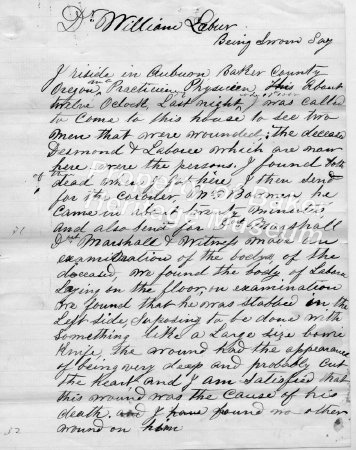 Dr William Labur
Being Sworn Say
I reside in Auburn Baker County
Oregon, and Practicien Physicien, this about
twelve Oclock, Last night, I was called
to come to this house to see two
men that were wounded; the deceased
Desmond & Laboree which are now
here were the persons. I found both
dead when I got here, I then send
for the Coroner, Mr Bowmen he
came in
and also send for Marshall
Dr Marshall & Witness made an
examination of the bodys of the
deceased, we found the body of Labore
Laying on the floor, on examination
we found that he was stabbed in the
Left side, suposing to be done with
something like a Large size bowie
Knife, the wound had the appearance
of being very deep and probably cut
the heart and I am satisfied that
this wound was the cause of his
death. and I have found no other
wound on him
51
52
Property of Baker
Heritage Museum